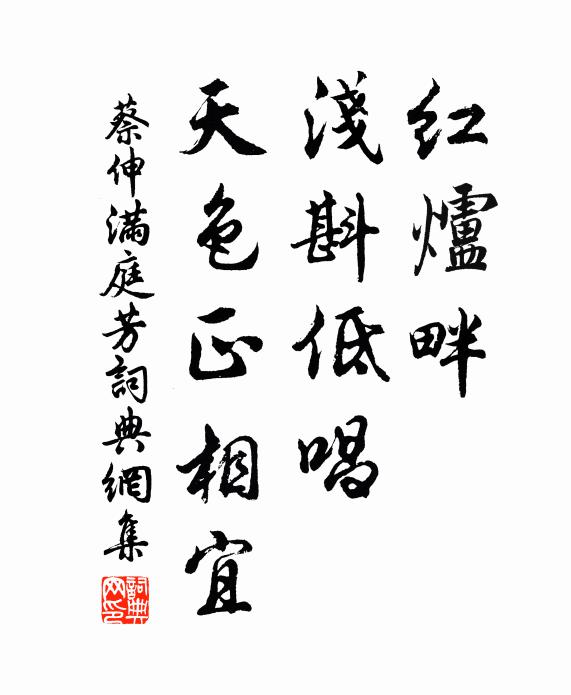 紅爐畔
淺斟低唱
天色正相宜
蔡伸滿庭芳詞典網集
詞典
网印